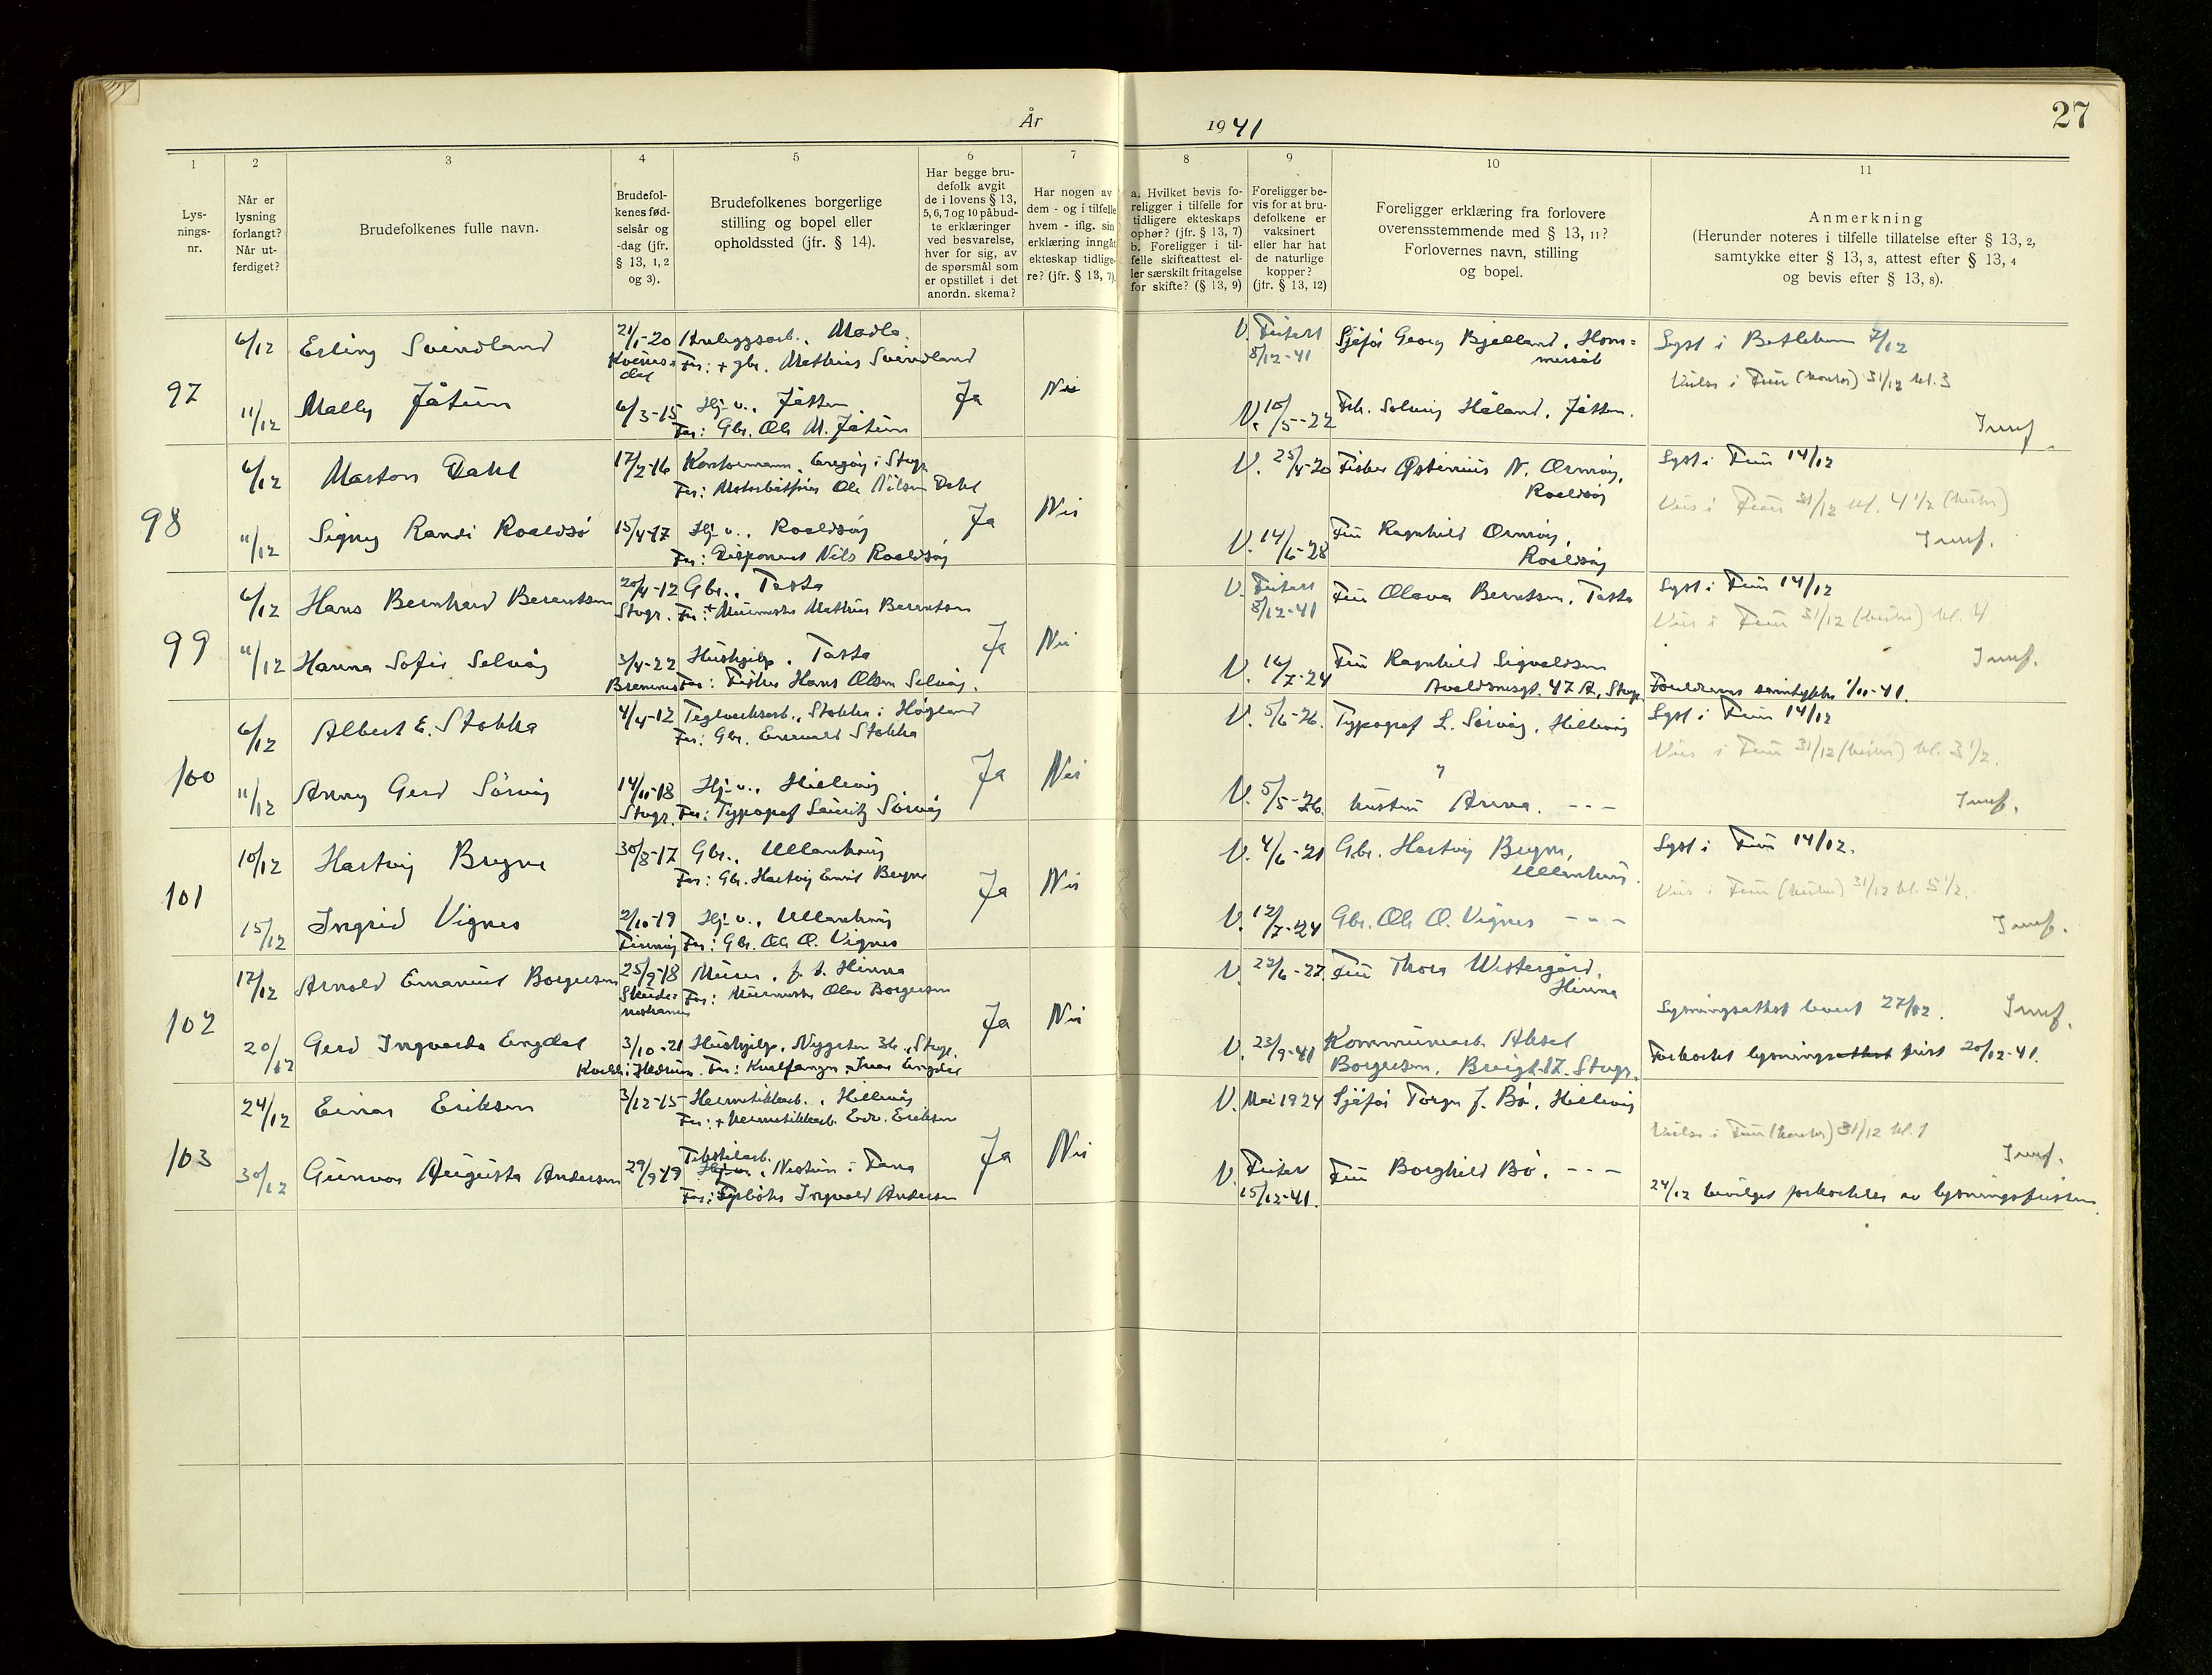 År 1941
27
1
Lys-
nings-
nr.
2
Når er
lysning
forlangt?
Når ut-
ferdiget?
3
Brudefolkenes fulle navn.
4
Brudefol-
kenes fød-
selsår og
-dag (jfr.
§ 13, 1, 2
og 3).
5
Brudefolkenes borgerlige
stilling og bopel eller
opholdssted (jfr. § 14).
6
Har begge bru-
defolk avgit
de i lovens § 13,
5, 6, 7 og 10 påbud-
te erklæringer
ved besvarelse,
hver for sig, av
de spørsmål som
er opstillet i det
anordn. skema?
7
Har nogen av
dem - og i tilfelle
hvem - iflg. sin
erklæring inngåt
ekteskap tidlige-
re? (jfr. § 13, 7).
8
a. Hvilket bevis fo-
religger i tilfelle for
tidligere ekteskaps
ophør? (jfr. § 13, 7)
b. Foreligger i til-
felle skifteattest el-
ler særskilt fritagelse
for skifte? (§ 13, 9)
9
Foreligger be-
vis for at bru-
defolkene er
vaksinert
eller har hat
de naturlige
kopper?
(jfr. § 13, 12)
10
Foreligger erklæring fra forlovere
overensstemmende med § 13, 11?
Forlovernes navn, stilling
og bopel.
11
Anmerkning
(Herunder noteres i tilfelle tillatelse efter § 13, 2,
samtykke efter § 13, 3, attest efter § 13, 4
og bevis efter § 13, 8).
97
6/12 Erling Svindland 21/1-20 Anleggsarb., Madla.
Far: + gbr. Mathias Svindland
V. 8/12-41 Sjåfør Georg Bjelland, Hom=
mersåk
11/12 Mally Jåtun 6/3-15 Hj. v., Jåtten
Far: Gbr. Ole M. Jåtun
Ja Nei
V. 10/5-22 Frk. Solveig Håland, Jåtten.
Lyst i Betlehem 7/12
Vies i Fruen (kontor) 31/12 kl. 3
98
6/12 Marton Dahl 17/2-16 Kontormann, Engøy i Stvgr.
Far: Motorbåtfører Ole Nilsen Dahl
V. 25/4-20 Fisker Østenius N. Ormøy,
Roaldsøy
11/12 Signy Randi Roaldsø 15/4-17 Hj. v., Roaldsøy
Far: Disponent Nils Roaldsøy
Ja Nei
V. 14/6-28 Fru Ragnhild Ormøy,
Roaldsøy
Lyst i Fruen 14/12
31/12 kl. 4 1/2
99
6/12 Hans Bernhard Berentsen 20/4-12 Gbr., Tasta
Stvgr. Far: + Murmester Mathias Berentsen
V. 8/12-41 Fru Olava Berntsen, Tasta
11/12 Hanna Sofie Selvåg 3/4-22 Hushjelp, Tasta
Far: Fisker Hans Olsen Selvåg.
Ja Nei
V. 16/7-24 Fru Ragnhild Sigvaldsen
47 A, Stvgr.
Lyst i Fruen 14/12
31/12 kl. 4
Foreldrenes samtykke 1/11-41.
100
6/12 Albert E. Stokka 4/4-12 Teglverksarb., Stokka i Høyland
Far: Gbr. Enevald Stokka
V. 5/6-26. Typograf L. Sørvåg, Hillevåg
11/12 Anny Gerd Sörvåg 14/11-18 Hj. v., Hillevåg
Stvgr. Far: Typograf Lauritz Sörvåg
Ja Nei
V. 5/5-26. hustru Anna. - - -
Lyst i Fruen 14/12
31/12 kl. 3 1/2.
101
10/12 Hartvig Bryne 30/8-17 Gbr., Ullenhaug
Far: Gbr. Hartvig Emil Bryne
V. 4/6-21 Gbr. Hartvig Bryne,
Ullenhaug.
15/12 Ingrid Vignes 2/10-19 Hj. v., Ullenhaug
Finnøy Far: Gbr. Ole O. Vignes
Ja Nei
V. 12/7-24 Gbr. Ole O. Vignes - - -
Lyst i Fruen 14/12.
31/12 kl. 5 1/2.
102
17/12 Arnold Emanuel Borgersen 25/9-18 Murer, f. t. Hinna
Skudes=
neshavn Far: Murmester Olav Borgersen
V. 22/6-22. Fru Thora Westergård,
Hinna
20/12 Gerd Ingvarda Engdal 3/10-21 Hushjelp, Nygaten 36, Stvgr.
Far: Hvalfanger Ivar Engdal
Ja Nei
V. 23/9-41 Kommunearb. Aksel
Borgersen, Breigt. 17. Stvgr.
Lysningsattest levert 27/12.
Forkortet lysningsattest frist 20/12-41.
103
24/12 Einar Eriksen 3/12-15 Hermetikkarb., Hillevåg
Far: + Hermetikkarb. Edv. Eriksen
V. Mai 1924 Sjåfør Torger J. Bø, Hillevåg
30/12 Gunvor Augusta Andersen 29/9-19 Tekstilarb.
Hj. v., Nestun i Fana
Far: Ingvald Andersen
Ja Nei
V. 15/12-41. Fru Borghild Bø. - - -
Vies i Fruen (kontor) 31/12 kl. 1
24/12 bevilget forkortelse av lysningsfristen